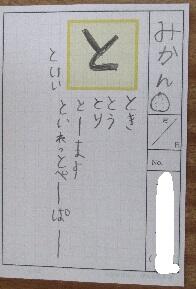 みかん
月
日
No.
と
とき
とう
とり
とーます
といれっとぺーぱー
といい